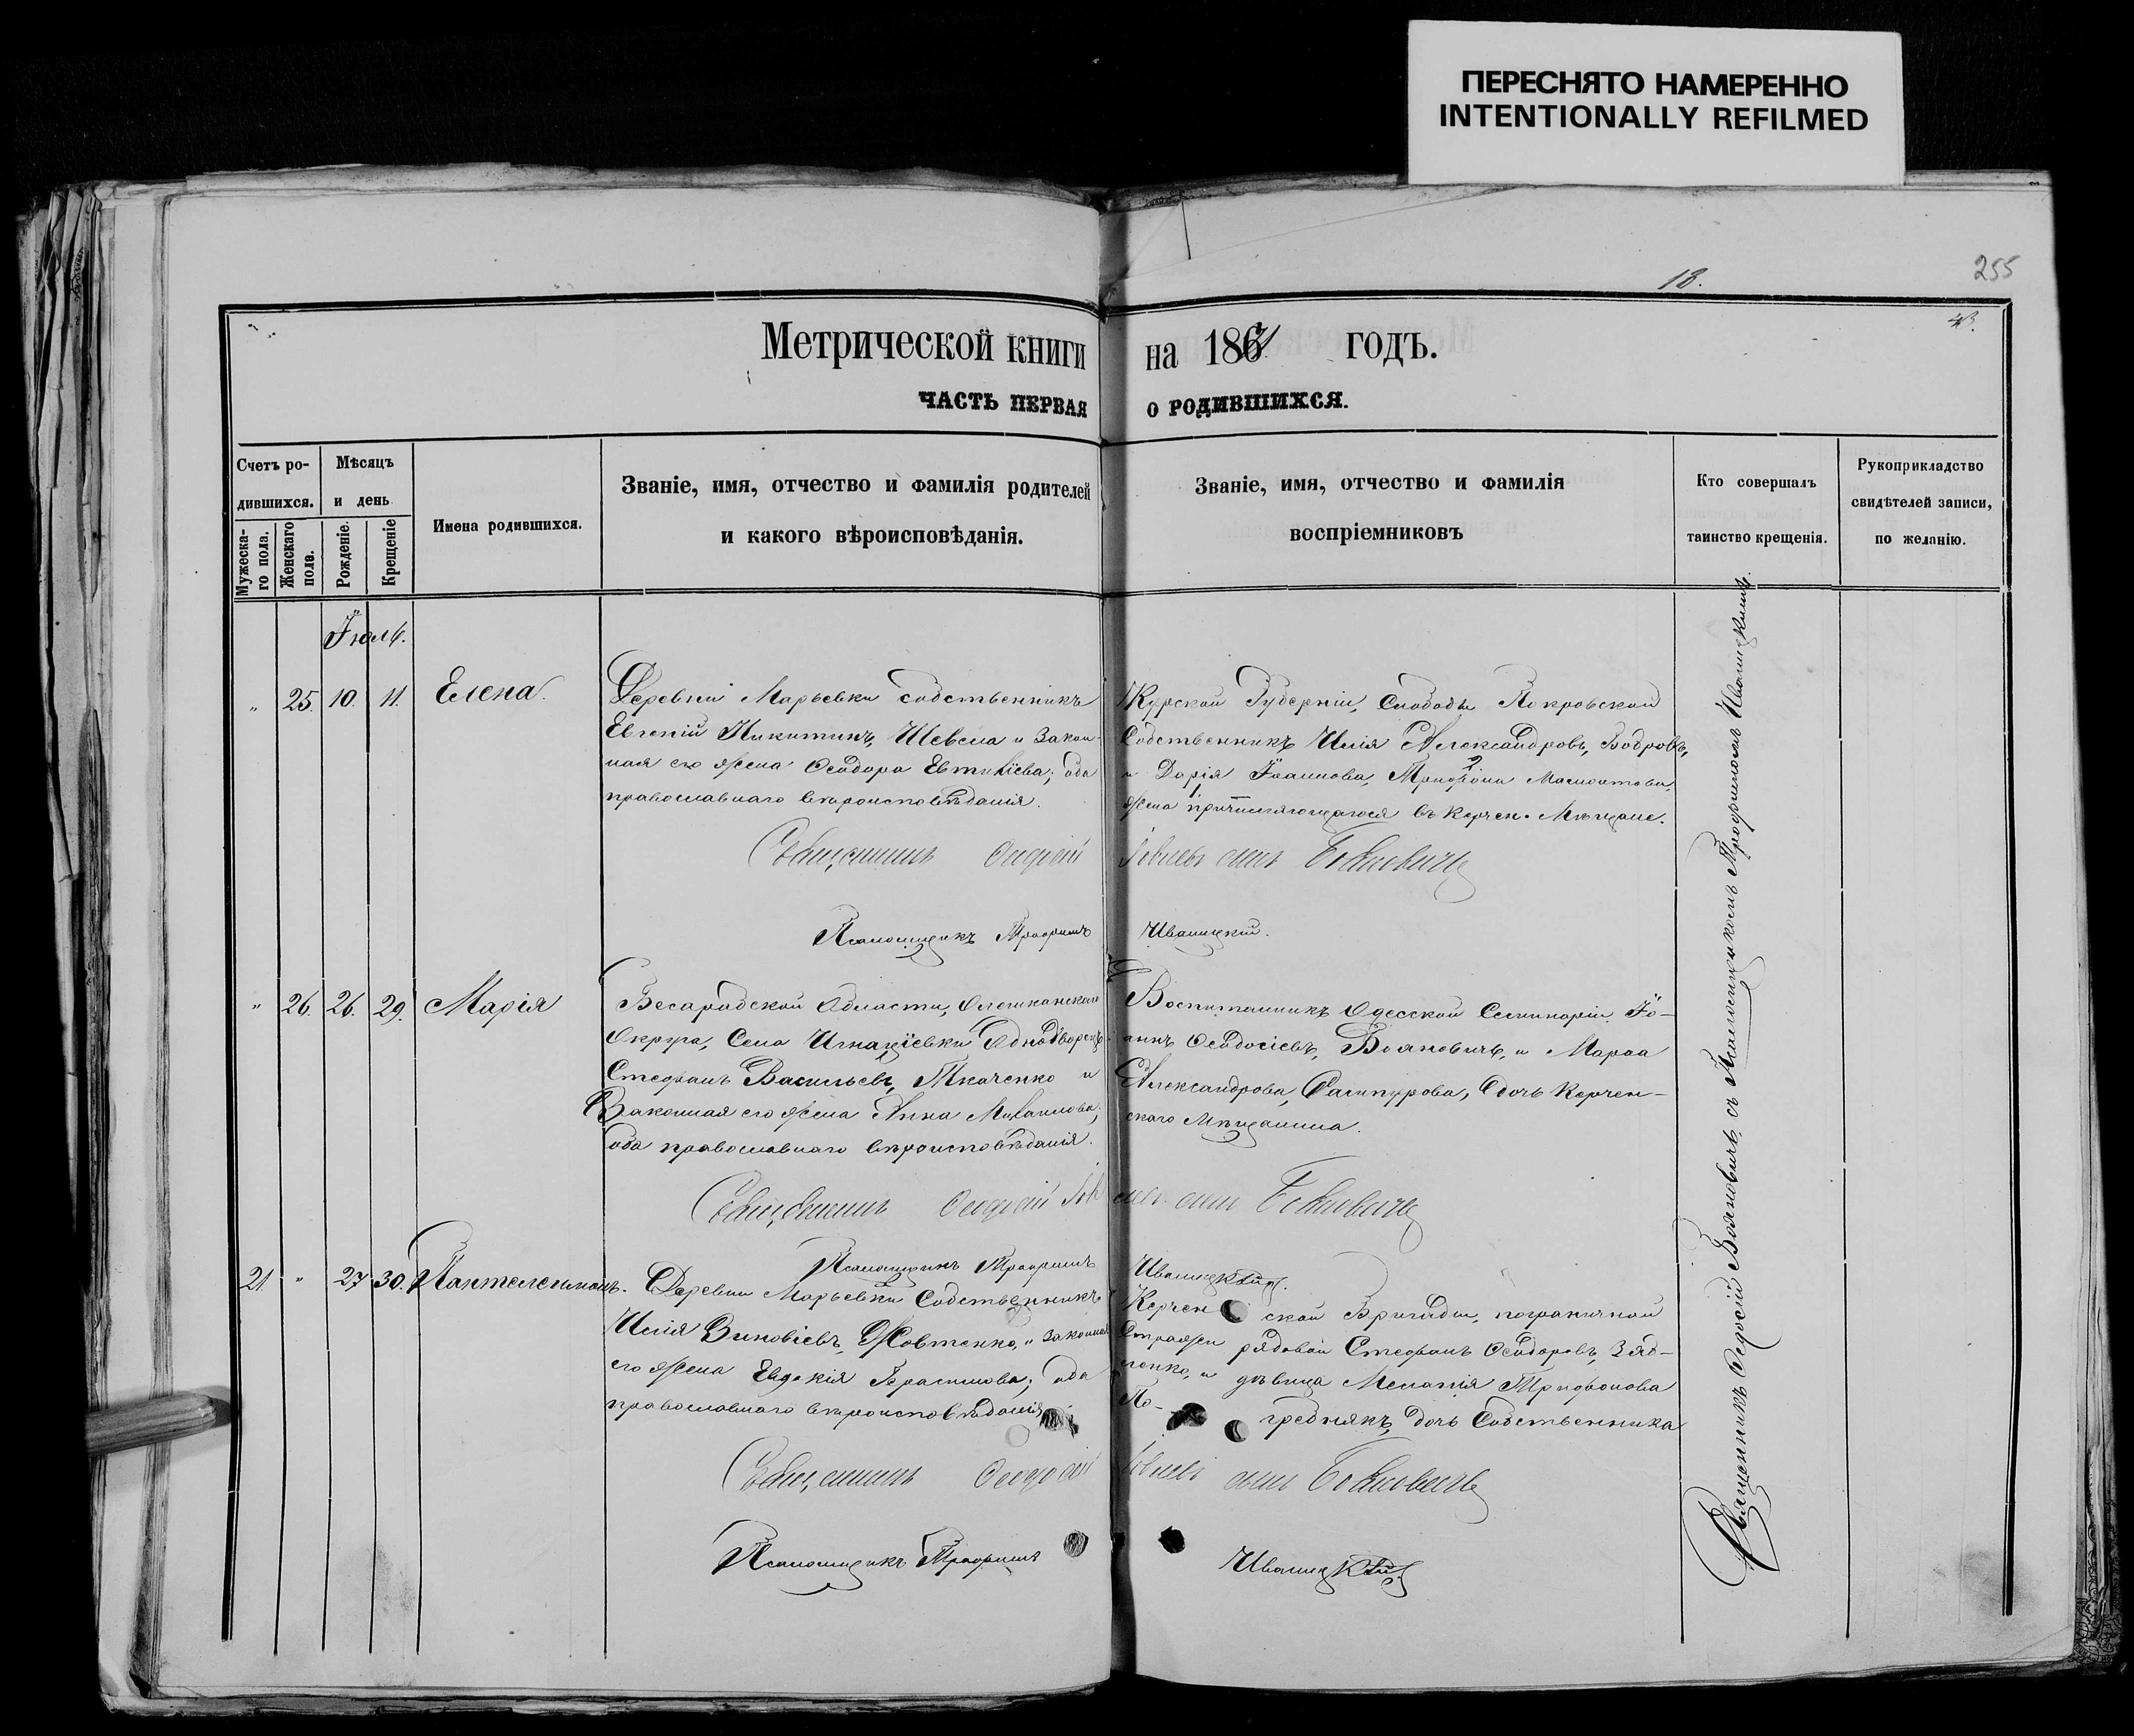 ПЕРЕСНЯТО НАМЕРЕННО
INTENTIONALLY REFILMED
255
18.
Метрической книги на 186 годъ.
ЧАСТЬ ПЕРВАЯ О РОДИВШИХСЯ.
Счетъ ро-
дившихся.
Мужеска-
го пола.
Женскаго
пола.
Мѣсяцъ
и день
Рожденіе.
Крещеніе
Имена родившихся.
Званіе, имя, отчество и фамилія родителей
и какого вѣроисповѣданія.
Званіе, имя, отчество и фамилія
воспріемниковъ
Кто совершалъ
таинство крещенія.
Рукоприкладство
свидѣтелей записи,
по желанію.
Іюль.
" 25. 10. 11. Елена.
Деревни Марьевки собственникъ
Евгеній Никитинъ, Шевела и закон-
ная его жена Ѳеодора Евтихіева; оба
православнаго вѣроисповѣданія.
Курской Губерніи, Слободы Покровской
Собственникъ Илія Александровъ, Бодровъ,
и Дарія Іоаннова, Трифона
жена причисляющагося въ Керчен. Мѣщане.
Священникъ Ѳеодосій Іовлевъ сынъ Бояновичъ
Псаломщикъ Трофимъ Иваницкій.
" 26. 26. 29. Марія
Бесарабской Области,
Округа, Села Игнацѣевки Однодворецъ
Стефанъ Васильевъ, Ткаченко и
Законная его жена Анна Михаилова;
оба православнаго вѣроисповѣданія.
Воспитанникъ Одесской Семинаріи Іо-
аннъ Ѳеодосіевъ, Бояновичъ, и Марѳа
Александрова, дочь Керчен-
скаго Мѣщанина.
Священникъ Ѳеодосій Іовлевъ сынъ Бояновичъ
Псаломщикъ Трофимъ Иваницкій.
21. " 27. 30. Пантелеимонъ.
Деревни Марьевки Собственникъ
Илія Зиновіевъ, Жовтенко, и законная
его жена Евдокія Герасимова; оба
православнаго вѣроисповѣданія
Керченской Бригады, пограничной
Стражи рядовой Стефанъ Ѳеодоровъ, Зяб-
ленко, и дѣвица Меланія Трифонова
По-гребнякъ, дочь Собственника
Священникъ Ѳеодосій Іовлевъ сынъ Бояновичъ
Псаломщикъ Трофимъ Иваницкій
Священникъ Ѳеодосій Бояновичъ, съ Псаломщикомъ Трофимомъ Иваницкимъ.